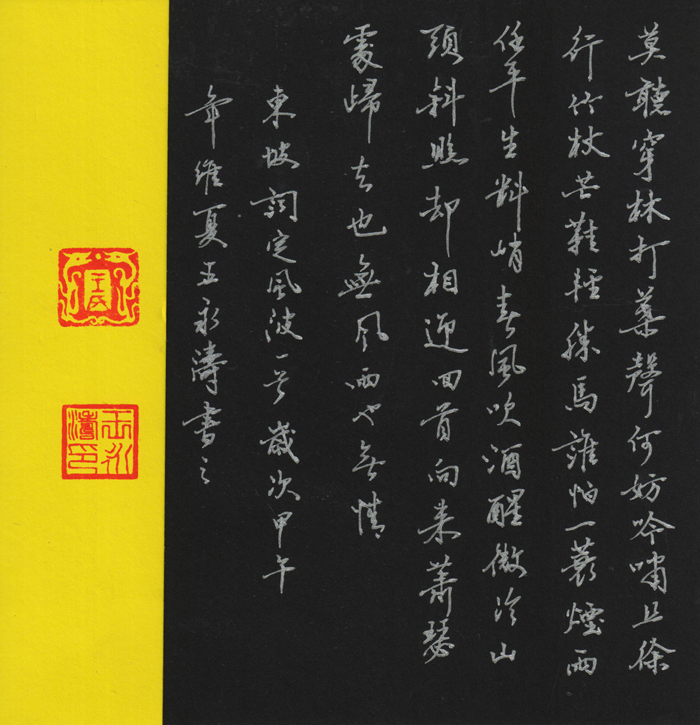 莫聽穿林打葉聲何妨吟嘯且徐
行竹杖芒鞋輕勝馬誰怕一蓑煙雨
任平生料峭春風吹酒醒微冷山
頭斜照却相迎回首向來蕭瑟
處歸去也無風雨也無情
東坡詞定風波一首歲次甲午
年維夏王永濤書之
王永濤印